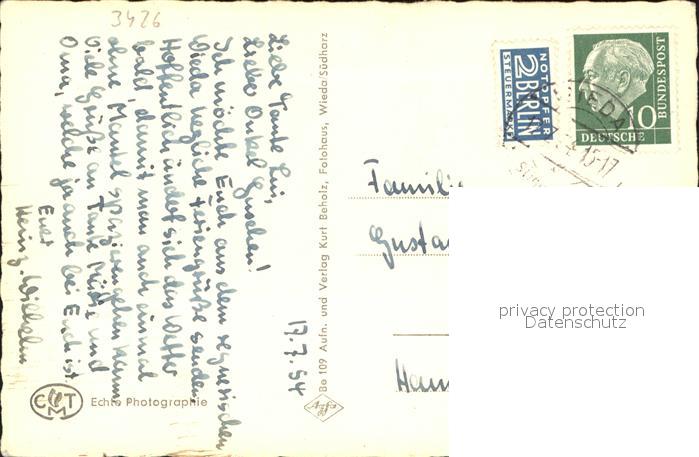 3426
Liebe Tante Lisi,
Lieber Onkel Guschen!
Ich möchte Euch aus dem regnerischen
Wieda herzliche Feriengrüße senden.
Hoffentlich ändert sich das Wetter
bald, damit man auch einmal
ohne Mantel spazierengehen kann.
Viele Grüße an Tante und
Oma, welche ja auch bei Euch ist.
Euer
Heinz-Wilhelm
17.7.54
CMT
Echte Photographie
Be 109 Aufn. und Verlag Kurt Beholz, Fotohaus, Wieda/Südharz
Agfa
NOTOPFER
2 BERLIN
STEUERMARKE
DEUTSCHE
BUNDESPOST
10
WIEDA
15-17
Familie
Gusta
Han
privacy protection
Datenschutz